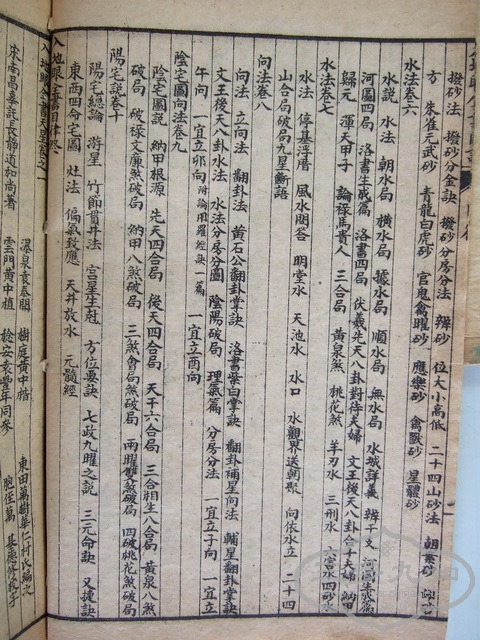 撥砂法 撥砂分金訣 撥砂分房分法 辨砂 位大小高低 二十四山砂法 朝案砂
方 朱雀元武砂 青龍白虎砂 官鬼禽曜砂 應樂砂 禽獸砂 星體砂
水法卷六
水說 水法 朝水局 橫水局 據水局 順水局 無水局 水城詳義 辨干支 河圖生成篇
河圖四局 洛書生成篇 洛書四局 伏羲先天八卦對待夫婦 文王後天八卦合十夫婦 納甲
歸元 渾天甲子 論祿馬貴人 三合局 黃泉煞 桃花煞 羊刃水 三刑水 六害水四砂水
水法卷七
水法 停基浮厝 風水問答 明堂水 天池水 水口 水觀界送朝聚 向依水立 二十四
山合局破局九星斷語
向法卷八
向法 立向法 翻卦法 黃石公翻卦掌訣 洛書紫白掌訣 翻卦補星向法 輔星翻卦掌訣
文王後天八卦水法 水法分房分圖 陰陽破局 理氣篇 分房分法 一宜立子向 一宜立
午向 一宜立卯向 附論用羅經訣一篇 一宜立酉向
陰宅圖向法卷九
陰宅圖說 納甲根源 先天四合局 後天四合局 天干六合局 三合相生八合局 黃泉八煞
破局 破祿文廉煞破局 納甲八煞破局 三煞會局煞破局 兩曜雙煞破局 四破桃花煞破局
陽宅說卷十
陽宅總論 游星 竹節貫井法 宮星生尅 方位要訣 七政九曜之說 三元命訣 又捷訣
東西四命宅圖 灶法 偏氣致應 天井放水 元髓經
入地眼全書目錄終
宋南昌辜託長靜道和尚著
瀑泉袁泰開 樹庭黃中楷 東田萬樹華仁村氏編次
雲門黃中植 稔安袁豐年同參